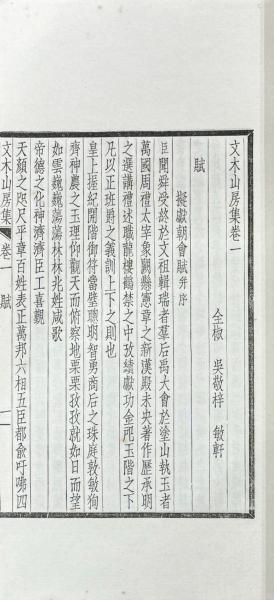 文木山房集卷一
全椒 吳敬梓 敏軒
賦
擬獻朝會賦并序
臣聞舜受終於文祖輯瑞者羣后禹大會於塗山執玉者
萬國周禮太宰象闕懸憲章之新漢殿未央著作歷承明
之選講禮述職龍樓鶴禁之中攷績獻功金戺玉階之下
凡以正班爵之義訓上下之則也
皇上握紀開階御符當璧聰明智勇商后之珠庭敦敏徇
齊神農之玉理仰觀天而俯察地栗栗孜孜就如日而望
如雲巍巍蕩蕩林林兆姓咸歌
帝德之化神濟濟臣工喜覩
天顏之咫尺平章百姓表正萬邦六相五臣都兪吁咈四
文木山房集 卷一 賦 一